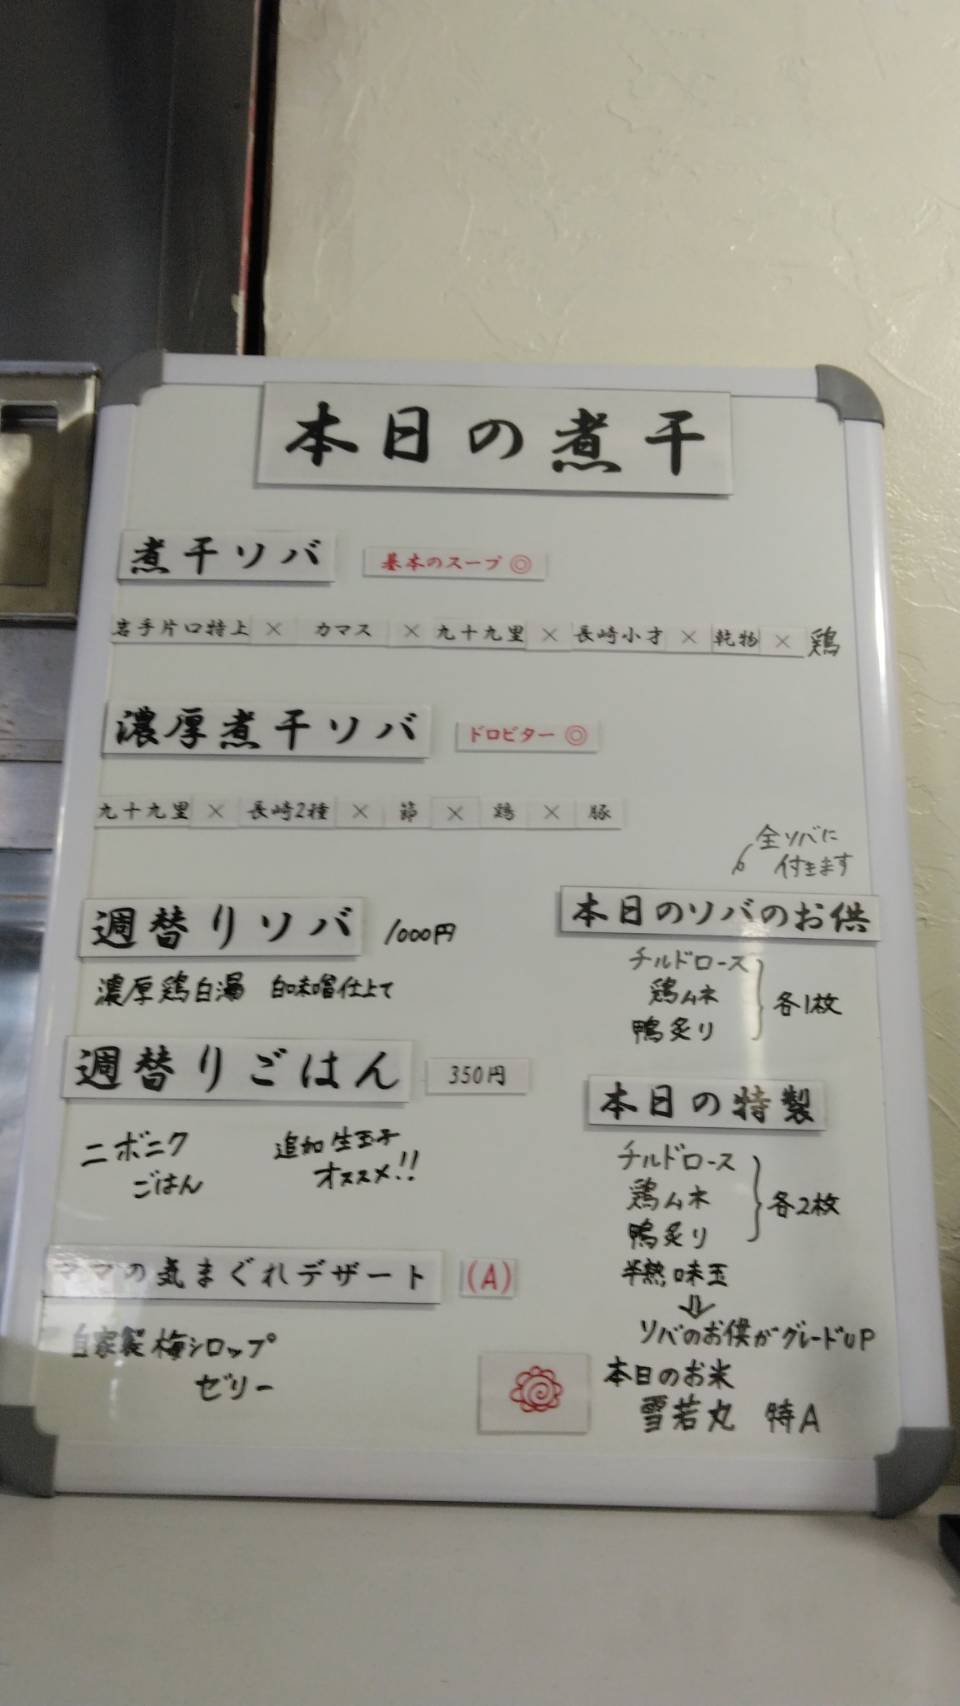 本日の煮干
煮干ソバ 基本のスープ◎
岩手片口特上 × カマス × 九十九里 × 長崎小才 × 乾物 × 鶏
濃厚煮干ソバ ドロビター◎
九十九里 × 長崎2種 × 節 × 鶏 × 豚
週替りソバ 1000円
濃厚鶏白湯 白味噌仕上て
週替りごはん 350円
ニボニク
ごはん
追加生玉子
オススメ!!
ママの気まぐれデザート (A)
自家製梅シロップ
ゼリー
全ソバに
付きます
本日のソバのお供
チルドロース
鶏ムネ
鴨炙り
各1枚
本日の特製
チルドロース
鶏ムネ
鴨炙り
各2枚
半熟味玉
⇓
ソバのお供がグレードUP
本日のお米
雪若丸 特A